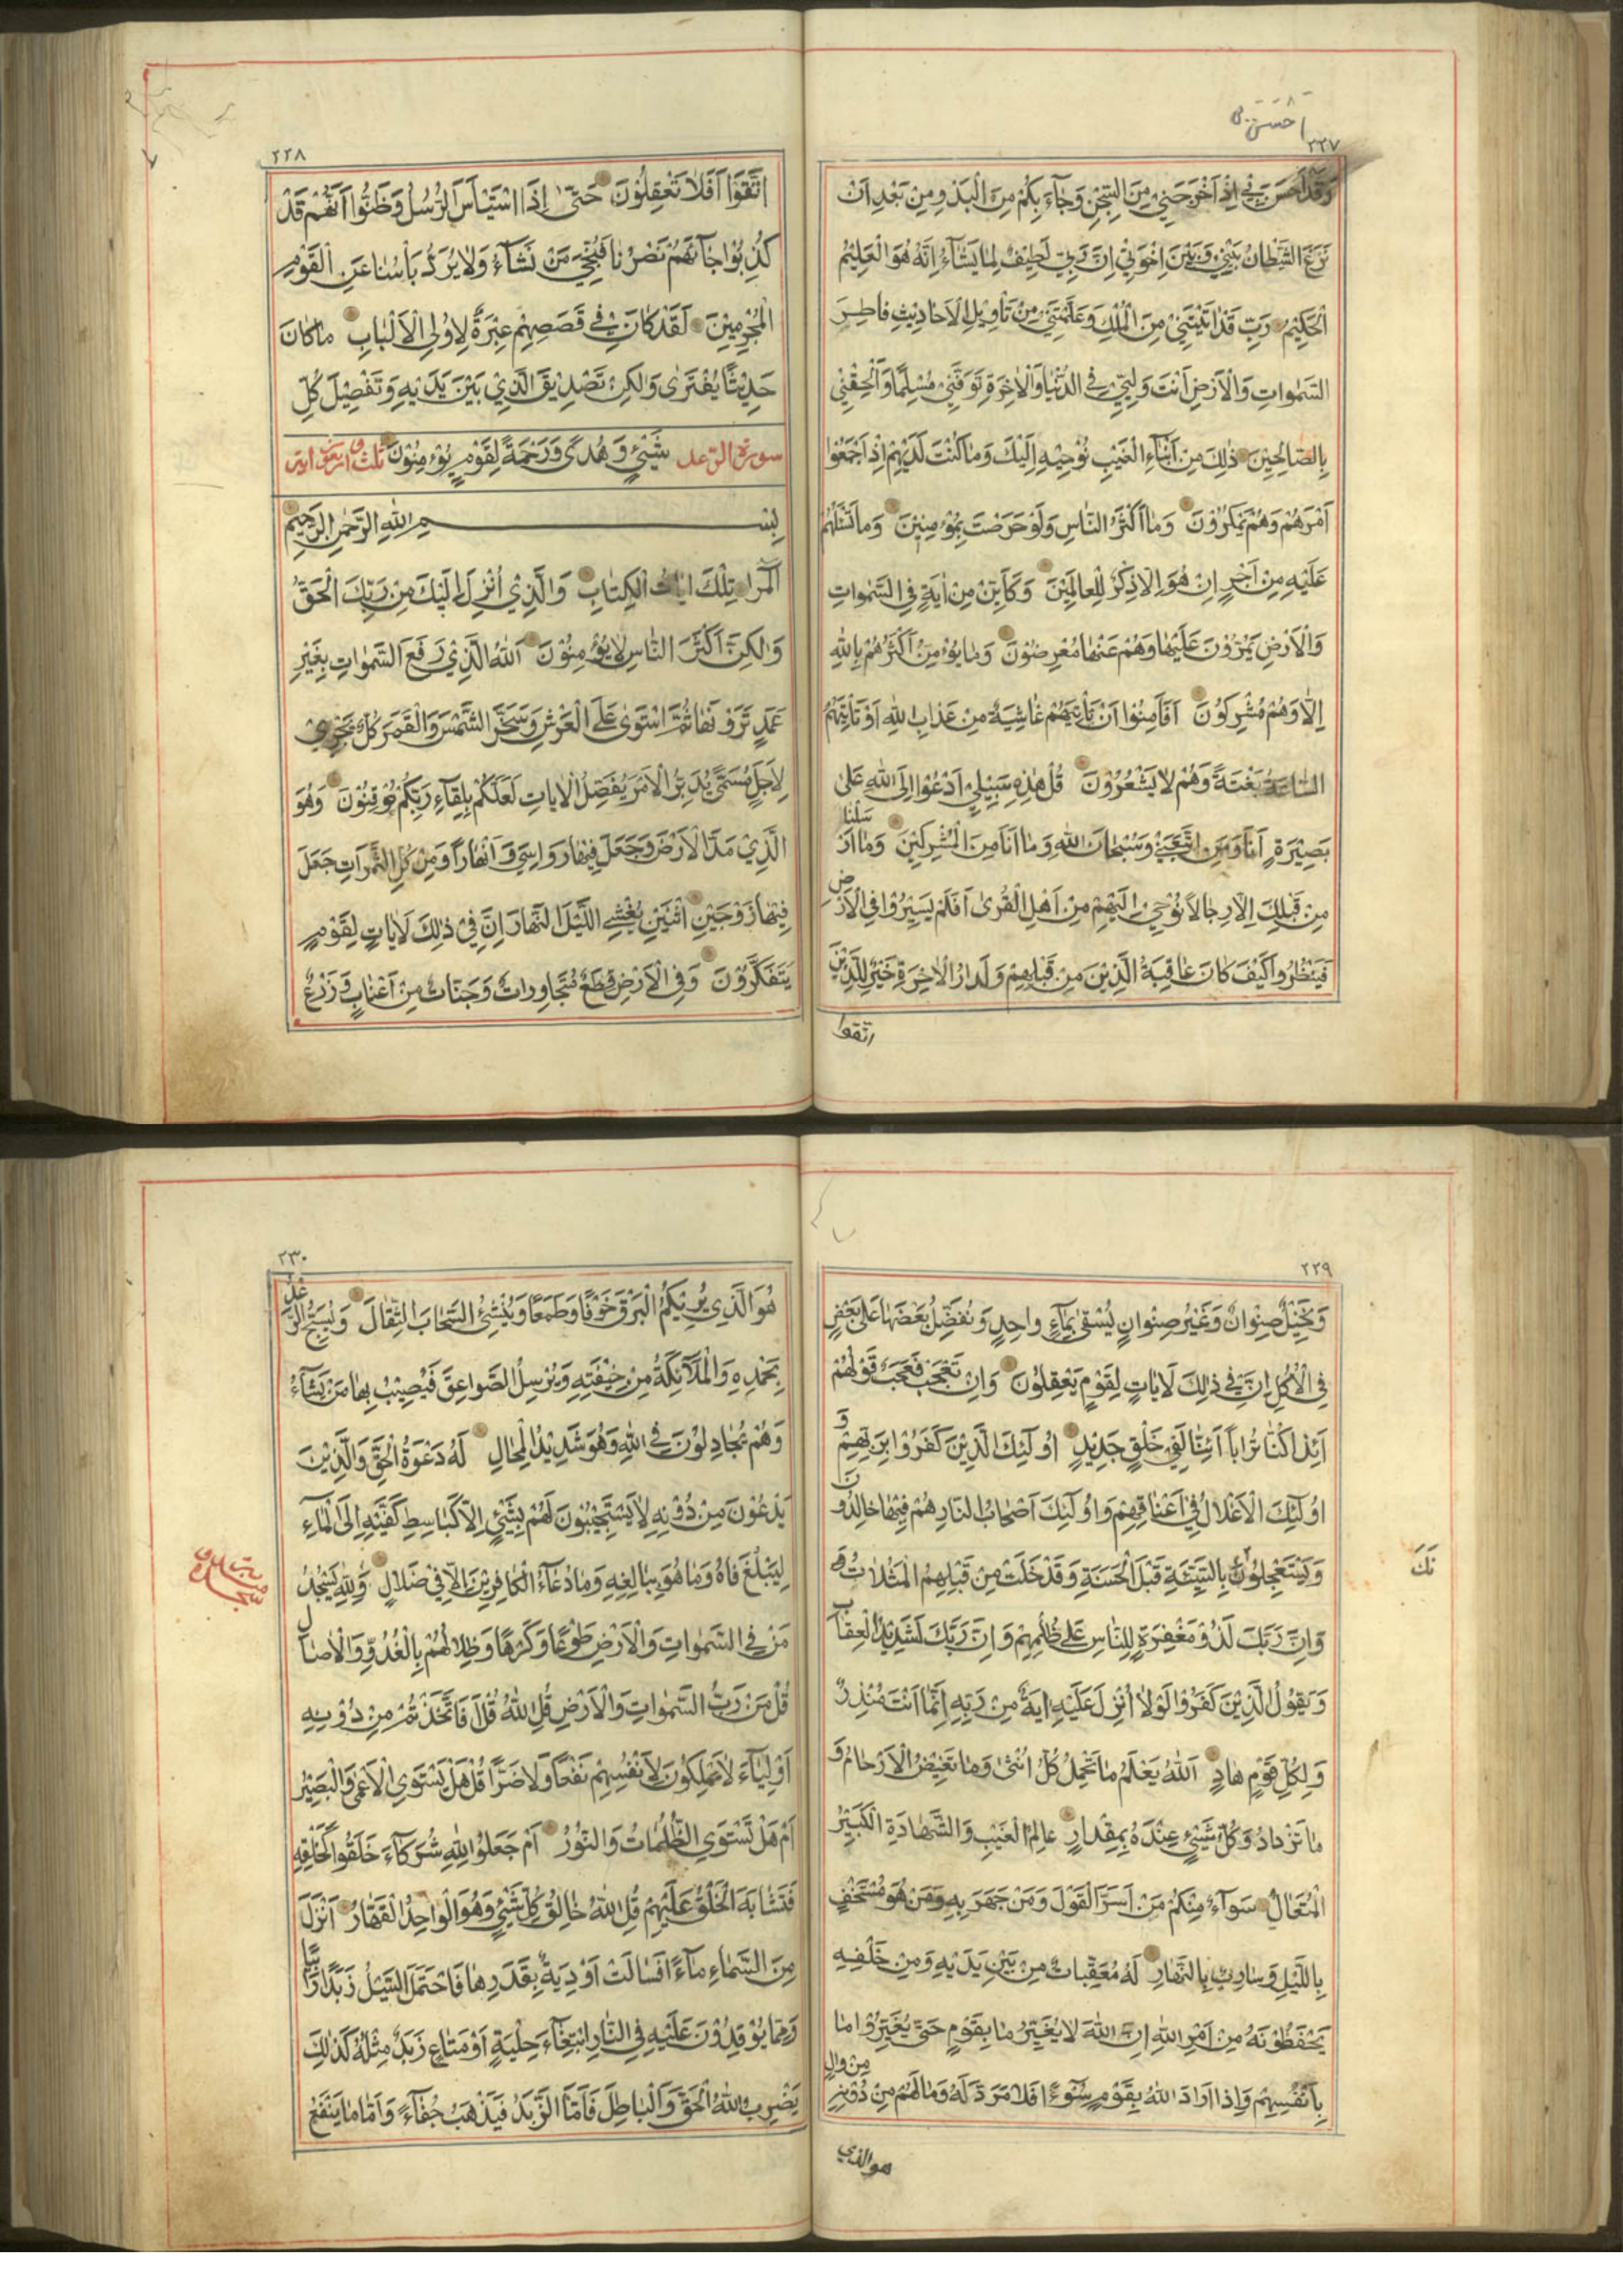 ٢٢٧
وَقَدْ اَحْسَنَ بِي اِذْ اَخْرَجَنِي مِنَ السِّجْنِ وَجَآءَ بِكُمْ مِنَ الْبَدْوِ مِنْ بَعْدِ اَنْ
نَزَغَ الشَّيْطَانُ بَيْنِي وَبَيْنَ اِخْوَتِي اِنَّ رَبِّي لَطِيفٌ لِمَا يَشَآءُ اِنَّهُ هُوَ الْعَلِيْمُ
الْحَكِيْمُ رَبِّ قَدْ اٰتَيْتَنِي مِنَ الْمُلْكِ وَعَلَّمْتَنِي مِنْ تَأْوِيْلِ الْاَحَادِيْثِ فَاطِرَ
السَّمٰوَاتِ وَالْاَرْضِ اَنْتَ وَلِيِّي فِي الدُّنْيَا وَالْاٰخِرَةِ تَوَفَّنِي مُسْلِمًا وَاَلْحِقْنِي
بِالصَّالِحِيْنَ ذٰلِكَ مِنْ اَنْبَآءِ الْغَيْبِ نُوْحِيْهِ اِلَيْكَ وَمَا كُنْتَ لَدَيْهِمْ اِذْ اَجْمَعُوْا
اَمْرَهُمْ وَهُمْ يَمْكُرُوْنَ وَمَا اَكْثَرُ النَّاسِ وَلَوْ حَرَصْتَ بِمُؤْمِنِيْنَ وَمَا تَسْئَلُهُمْ
عَلَيْهِ مِنْ اَجْرٍ اِنْ هُوَ اِلَّا ذِكْرٌ لِلْعَالَمِيْنَ وَكَاَيِّنْ مِنْ اٰيَةٍ فِي السَّمٰوَاتِ
وَالْاَرْضِ يَمُرُّوْنَ عَلَيْهَا وَهُمْ عَنْهَا مُعْرِضُوْنَ وَمَا يُؤْمِنُ اَكْثَرُهُمْ بِاللّٰهِ
اِلَّا وَهُمْ مُشْرِكُوْنَ اَفَاَمِنُوْا اَنْ تَأْتِيَهُمْ غَاشِيَةٌ مِنْ عَذَابِ اللّٰهِ اَوْ تَأْتِيَهُمُ
السَّاعَةُ بَغْتَةً وَهُمْ لَا يَشْعُرُوْنَ قُلْ هٰذِهِ سَبِيْلِي اَدْعُوْا اِلَى اللّٰهِ عَلٰى
بَصِيْرَةٍ اَنَا وَمَنِ اتَّبَعَنِيْ وَسُبْحَانَ اللّٰهِ وَمَا اَنَا مِنَ الْمُشْرِكِيْنَ وَمَا اَرْسَلْنَا
مِنْ قَبْلِكَ اِلَّا رِجَالًا نُوْحِيْ اِلَيْهِمْ مِنْ اَهْلِ الْقُرٰى اَفَلَمْ يَسِيْرُوْا فِي الْاَرْضِ
فَيَنْظُرُوا كَيْفَ كَانَ عَاقِبَةُ الَّذِيْنَ مِنْ قَبْلِهِمْ وَلَدَارُ الْاٰخِرَةِ خَيْرٌ لِلَّذِيْنَ
اتقوا
٢٢٨
اتَّقَوْا اَفَلَا تَعْقِلُوْنَ حَتّٰى اِذَا اسْتَيْاَسَ الرُّسُلُ وَظَنُّوا اَنَّهُمْ قَدْ
كُذِبُوْا جَآءَهُمْ نَصْرُنَا فَنُجِّيَ مَنْ نَشَآءُ وَلَا يُرَدُّ بَأْسُنَا عَنِ الْقَوْمِ
الْمُجْرِمِيْنَ لَقَدْ كَانَ فِي قَصَصِهِمْ عِبْرَةٌ لِاُولِي الْاَلْبَابِ مَا كَانَ
حَدِيْثًا يُفْتَرٰى وَلٰكِنْ تَصْدِيْقَ الَّذِيْ بَيْنَ يَدَيْهِ وَتَفْصِيْلَ كُلِّ
سورة الرعد شَيْئٍ وَهُدًى وَرَحْمَةً لِقَوْمٍ يُؤْمِنُوْنَ ثلث واربعون اية
بِسْمِ اللّٰهِ الرَّحْمٰنِ الرَّحِيْمِ
الٓمٓرٰ تِلْكَ اٰيَاتُ الْكِتَابِ وَالَّذِيْ اُنْزِلَ اِلَيْكَ مِنْ رَبِّكَ الْحَقُّ
وَلٰكِنَّ اَكْثَرَ النَّاسِ لَا يُؤْمِنُوْنَ اَللّٰهُ الَّذِيْ رَفَعَ السَّمٰوَاتِ بِغَيْرِ
عَمَدٍ تَرَوْنَهَا ثُمَّ اسْتَوٰى عَلَى الْعَرْشِ وَسَخَّرَ الشَّمْسَ وَالْقَمَرَ كُلٌّ يَجْرِيْ
لِاَجَلٍ مُسَمًّى يُدَبِّرُ الْاَمْرَ يُفَصِّلُ الْاٰيَاتِ لَعَلَّكُمْ بِلِقَآءِ رَبِّكُمْ تُوْقِنُوْنَ وَهُوَ
الَّذِيْ مَدَّ الْاَرْضَ وَجَعَلَ فِيْهَا رَوَاسِيَ وَاَنْهَارًا وَمِنْ كُلِّ الثَّمَرَاتِ جَعَلَ
فِيْهَا زَوْجَيْنِ اثْنَيْنِ يُغْشِي اللَّيْلَ النَّهَارَ اِنَّ فِيْ ذٰلِكَ لَاٰيَاتٍ لِقَوْمٍ
يَتَفَكَّرُوْنَ وَفِي الْاَرْضِ قِطَعٌ مُتَجَاوِرَاتٌ وَجَنَّاتٌ مِنْ اَعْنَابٍ وَزَرْعٌ
٢٢٩
وَنَخِيْلٌ صِنْوَانٌ وَغَيْرُ صِنْوَانٍ يُسْقٰى بِمَآءٍ وَاحِدٍ وَنُفَضِّلُ بَعْضَهَا عَلٰى بَعْضٍ
فِي الْاُكُلِ اِنَّ فِي ذٰلِكَ لَاٰيَاتٍ لِقَوْمٍ يَعْقِلُوْنَ وَاِنْ تَعْجَبْ فَعَجَبٌ قَوْلُهُمْ
ءَاِذَا كُنَّا تُرَابًا ءَاِنَّا لَفِي خَلْقٍ جَدِيْدٍ اُولٰئِكَ الَّذِيْنَ كَفَرُوْا بِرَبِّهِمْ وَ
اُولٰئِكَ الْاَغْلَالُ فِيْ اَعْنَاقِهِمْ وَاُولٰئِكَ اَصْحَابُ النَّارِ هُمْ فِيْهَا خَالِدُوْنَ
وَيَسْتَعْجِلُوْنَكَ بِالسَّيِّئَةِ قَبْلَ الْحَسَنَةِ وَقَدْ خَلَتْ مِنْ قَبْلِهِمُ الْمَثُلَاتُ
نَكَ
وَاِنَّ رَبَّكَ لَذُوْ مَغْفِرَةٍ لِلنَّاسِ عَلٰى ظُلْمِهِمْ وَاِنَّ رَبَّكَ لَشَدِيْدُ الْعِقَابِ
وَيَقُوْلُ الَّذِيْنَ كَفَرُوْا لَوْلَا اُنْزِلَ عَلَيْهِ اٰيَةٌ مِنْ رَبِّهِ اِنَّمَا اَنْتَ مُنْذِرٌ
وَلِكُلِّ قَوْمٍ هَادٍ اَللّٰهُ يَعْلَمُ مَا تَحْمِلُ كُلُّ اُنْثٰى وَمَا تَغِيْضُ الْاَرْحَامُ وَ
مَا تَزْدَادُ وَكُلُّ شَيْئٍ عِنْدَهُ بِمِقْدَارٍ عَالِمُ الْغَيْبِ وَالشَّهَادَةِ الْكَبِيْرُ
الْمُتَعَالُ سَوَآءٌ مِنْكُمْ مَنْ اَسَرَّ الْقَوْلَ وَمَنْ جَهَرَ بِهِ وَمَنْ هُوَ مُسْتَخْفٍ
بِاللَّيْلِ وَسَارِبٌ بِالنَّهَارِ لَهُ مُعَقِّبَاتٌ مِنْ بَيْنِ يَدَيْهِ وَمِنْ خَلْفِهِ
يَحْفَظُوْنَهُ مِنْ اَمْرِ اللّٰهِ اِنَّ اللّٰهَ لَا يُغَيِّرُ مَا بِقَوْمٍ حَتّٰى يُغَيِّرُوْا مَا
بِاَنْفُسِهِمْ وَاِذَا اَرَادَ اللّٰهُ بِقَوْمٍ سُوْءًا فَلَا مَرَدَّ لَهُ وَمَا لَهُمْ مِنْ دُوْنِهِ مِنْ وَالٍ
هو الذي
٢٣٠
هُوَ الَّذِي يُرِيْكُمُ الْبَرْقَ خَوْفًا وَطَمَعًا وَيُنْشِئُ السَّحَابَ الثِّقَالَ وَيُسَبِّحُ الرَّعْدُ
بِحَمْدِهِ وَالْمَلٰٓئِكَةُ مِنْ خِيْفَتِهِ وَيُرْسِلُ الصَّوَاعِقَ فَيُصِيْبُ بِهَا مَنْ يَشَآءُ
وَهُمْ يُجَادِلُوْنَ فِي اللّٰهِ وَهُوَ شَدِيْدُ الْمِحَالِ لَهُ دَعْوَةُ الْحَقِّ وَالَّذِيْنَ
يَدْعُوْنَ مِنْ دُوْنِهِ لَا يَسْتَجِيْبُوْنَ لَهُمْ بِشَيْئٍ اِلَّا كَبَاسِطِ كَفَّيْهِ اِلَى الْمَآءِ
لِيَبْلُغَ فَاهُ وَمَا هُوَ بِبَالِغِهِ وَمَا دُعَآءُ الْكَافِرِيْنَ اِلَّا فِيْ ضَلَالٍ وَلِلّٰهِ يَسْجُدُ
مَنْ فِي السَّمٰوَاتِ وَالْاَرْضِ طَوْعًا وَكَرْهًا وَظِلَالُهُمْ بِالْغُدُوِّ وَالْاٰصَالِ
قُلْ مَنْ رَبُّ السَّمٰوَاتِ وَالْاَرْضِ قُلِ اللّٰهُ قُلْ اَفَاتَّخَذْتُمْ مِنْ دُوْنِهِ
اَوْلِيَآءَ لَا يَمْلِكُوْنَ لِاَنْفُسِهِمْ نَفْعًا وَلَا ضَرًّا قُلْ هَلْ يَسْتَوِي الْاَعْمٰى وَالْبَصِيْرُ
اَمْ هَلْ تَسْتَوِي الظُّلُمَاتُ وَالنُّوْرُ اَمْ جَعَلُوْا لِلّٰهِ شُرَكَآءَ خَلَقُوْا كَخَلْقِهِ
فَتَشَابَهَ الْخَلْقُ عَلَيْهِمْ قُلِ اللّٰهُ خَالِقُ كُلِّ شَيْئٍ وَهُوَ الْوَاحِدُ الْقَهَّارُ اَنْزَلَ
مِنَ السَّمَاءِ مَآءً فَسَالَتْ اَوْدِيَةٌ بِقَدَرِهَا فَاحْتَمَلَ السَّيْلُ زَبَدًا رَابِيًا
وَمِمَّا يُوْقِدُوْنَ عَلَيْهِ فِي النَّارِ ابْتِغَآءَ حِلْيَةٍ اَوْ مَتَاعٍ زَبَدٌ مِثْلُهُ كَذٰلِكَ
يَضْرِبُ اللّٰهُ الْحَقَّ وَالْبَاطِلَ فَاَمَّا الزَّبَدُ فَيَذْهَبُ جُفَآءً وَاَمَّا مَا يَنْفَعُ